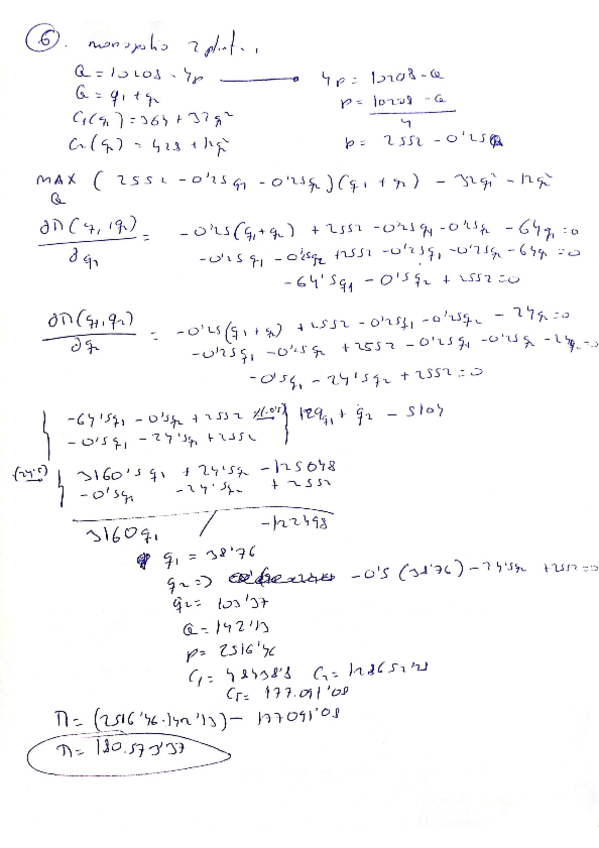 6. monopolio 2 plant.,
Q = 10208 - 4p → 4p = 10208 - Q
Q = q1 + q2 p = 10208 - Q / 4
C1(q1) = 364 + 32q²
C2(q2) = 428 + 12q² p = 2552 - 0'25Q
MAX Q (2552 - 0'25q1 - 0'25q2)(q1 + q2) - 32q1² - 12q2²
∂Π(q1,q2) / ∂q1 = -0'25(q1+q2) + 2552 - 0'25q1 - 0'25q2 - 64q1 = 0
-0'25q1 - 0'25q2 + 2552 - 0'25q1 - 0'25q2 - 64q1 = 0
-64'5q1 - 0'5q2 + 2552 = 0
∂Π(q1,q2) / ∂q2 = -0'25(q1+q2) + 2552 - 0'25q1 - 0'25q2 - 24q2 = 0
-0'25q1 - 0'25q2 + 2552 - 0'25q1 - 0'25q2 - 24q2 = 0
-0'5q1 - 24'5q2 + 2552 = 0
-64'5q1 - 0'5q2 + 2552 /(-0'5) } 129q1 + q2 - 5104
-0'5q1 - 24'5q2 + 2552
(24'5) { 3160'5q1 + 24'5q2 - 125048
-0'5q1 - 24'5q2 + 2552
3160q1 / -122498
q1 = 38'76
q2 => -0'5(38'76) - 24'5q2 + 2552 = 0
q2 = 103'37
Q = 142'13
p = 2516'46
C1 = 48438'8 C2 = 128652'28
CT = 177.091'08
Π = (2516'46·142'13) - 177091'08
Π = 180.573'37